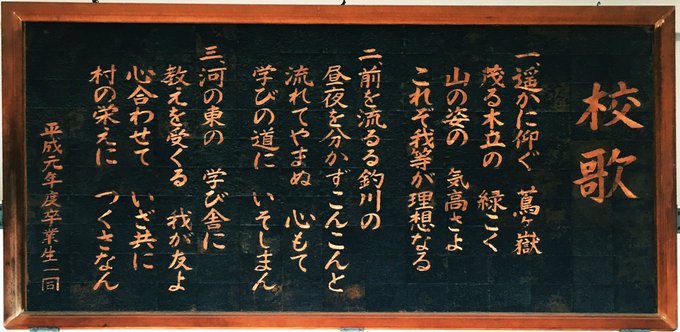 校歌
一、遥かに仰ぐ 蔦ヶ嶽
茂る木立の 緑こく
山の姿の 気高さよ
これぞ我等が理想なる
二、前を流るる釣川の
昼夜を分かずこんこんと
流れてやまぬ 心もて
学びの道に いそしまん
三、河の東の 学び舎に
教えを受くる 我が友よ
心合わせて いざ共に
村の栄えに つくさなん
平成元年度卒業生一同